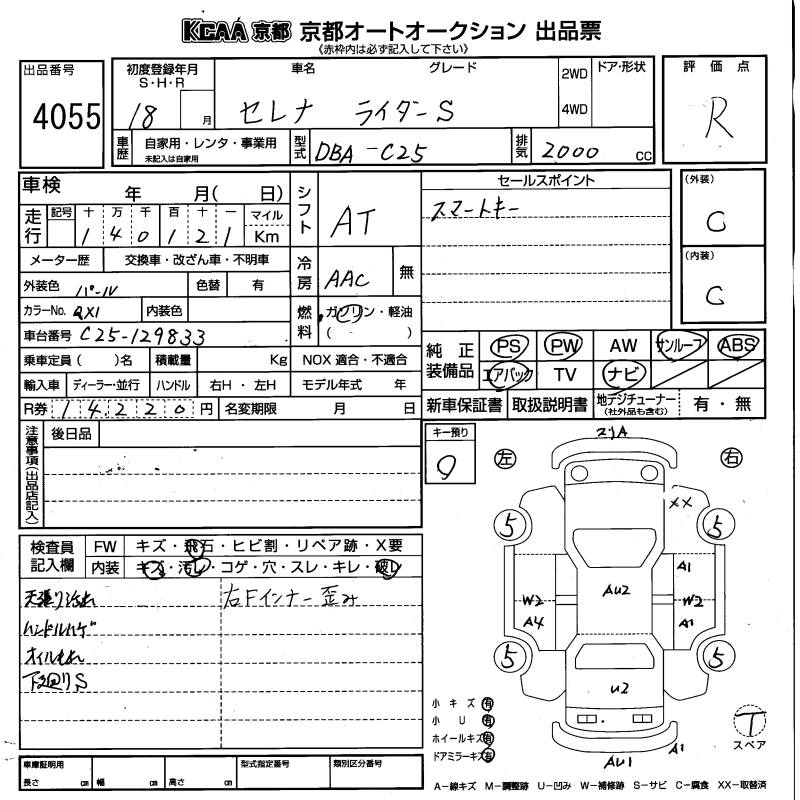 KCAA 京都 京都オートオークション 出品票
《赤枠内は必ず記入して下さい》
出品番号
4055
初度登録年月
S・H・R
18 月
車名 グレード
セレナ ライダーS
2WD
4WD
ドア・形状
評価点
R
車歴
自家用・レンタ・事業用
未記入は自家用
型式
DBA-C25
排気
2000 cc
車検 年 月( 日)
走行
記号 十 万 千 百 十 一 マイル
1 4 0 1 2 1 Km
シフト
AT
セールスポイント
スマートキー
(外装)
C
(内装)
C
メーター歴 交換車・改ざん車・不明車
外装色 パール 色替 有
冷房
AAC 無
カラーNo. QX1 内装色
燃料
ガソリン・軽油
( )
車台番号 C25-129833
乗車定員( )名 積載量 Kg NOX 適合・不適合
輸入車 ディーラー・並行 ハンドル 右H・左H モデル年式 年
R券 1 4 2 2 0 円 名変期限 月 日
純正装備品
PS PW AW サンルーフ ABS
エアバック TV ナビ
新車保証書 取扱説明書 地デジチューナー 有・無
(社外品も含む)
注意事項(出品店記入)
後日品
キー預り
0
左
右
スリA
XX
5
5
A1
W2
A4
AU2
W2
A1
5
5
U2
AU1
A1
検査員記入欄
FW キズ・飛石・ヒビ割・リペア跡・X要
内装 キズ・汚レ・コゲ・穴・スレ・キレ・破レ
天張り汚れ
右Fインナー歪み
ハンドルハゲ
オイルもれ
下廻りS
小キズ 有
小U 有
ホイールキズ 有
ドアミラーキズ 有
T
スペア
車庫証明用
長さ cm 幅 cm 高さ cm
型式指定番号
類別区分番号
A―線キズ M―調整跡 U―凹み W―補修跡 S―サビ C―腐食 XX―取替済